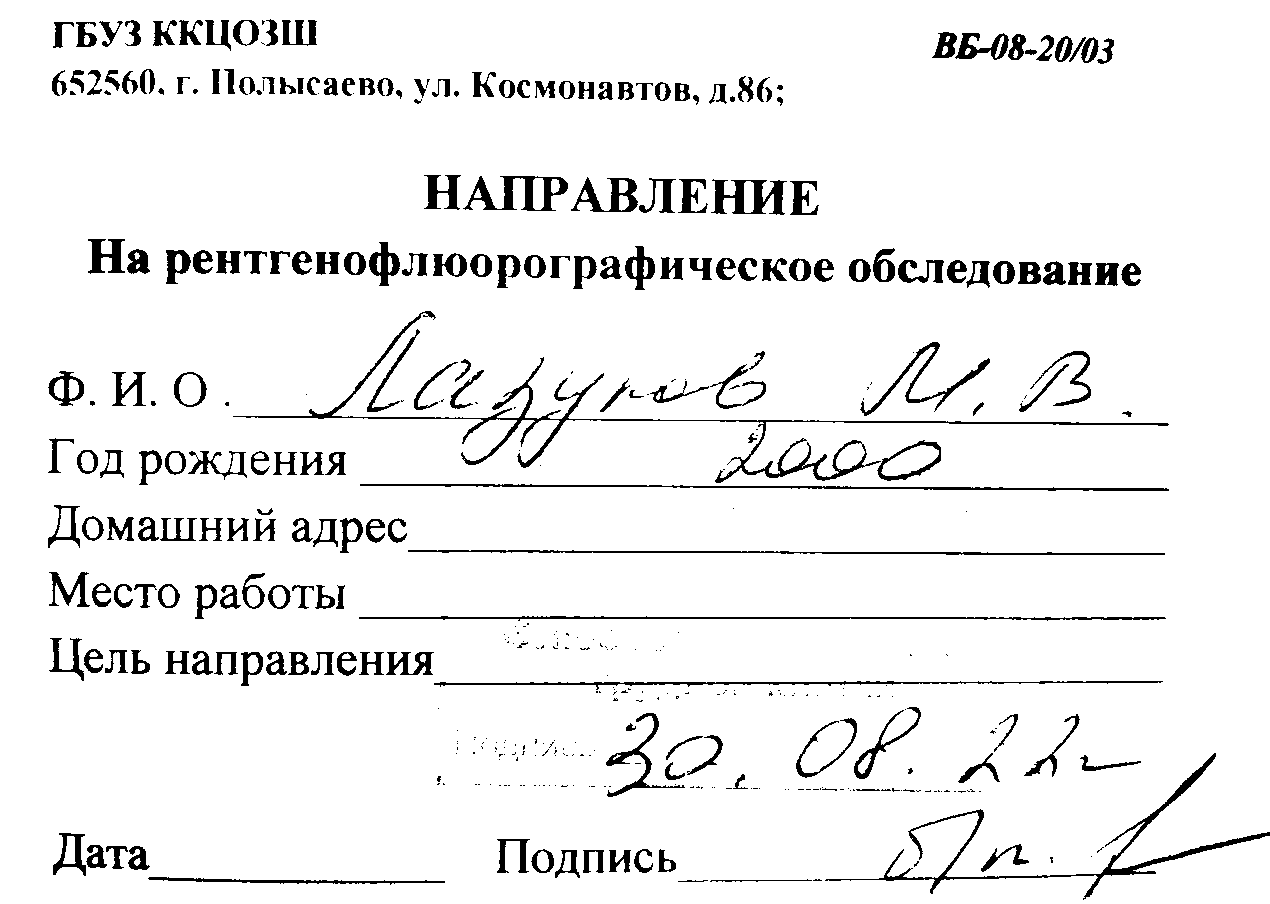 ГБУЗ ККЦОЗШ
ВБ-08-20/03
652560, г. Полысаево, ул. Космонавтов, д.86;
НАПРАВЛЕНИЕ
На рентгенофлюорографическое обследование
Ф. И. О. Лазуков М. В.
Год рождения 2000
Домашний адрес
Место работы
Цель направления
30.08.22г
Дата Подпись б/п.